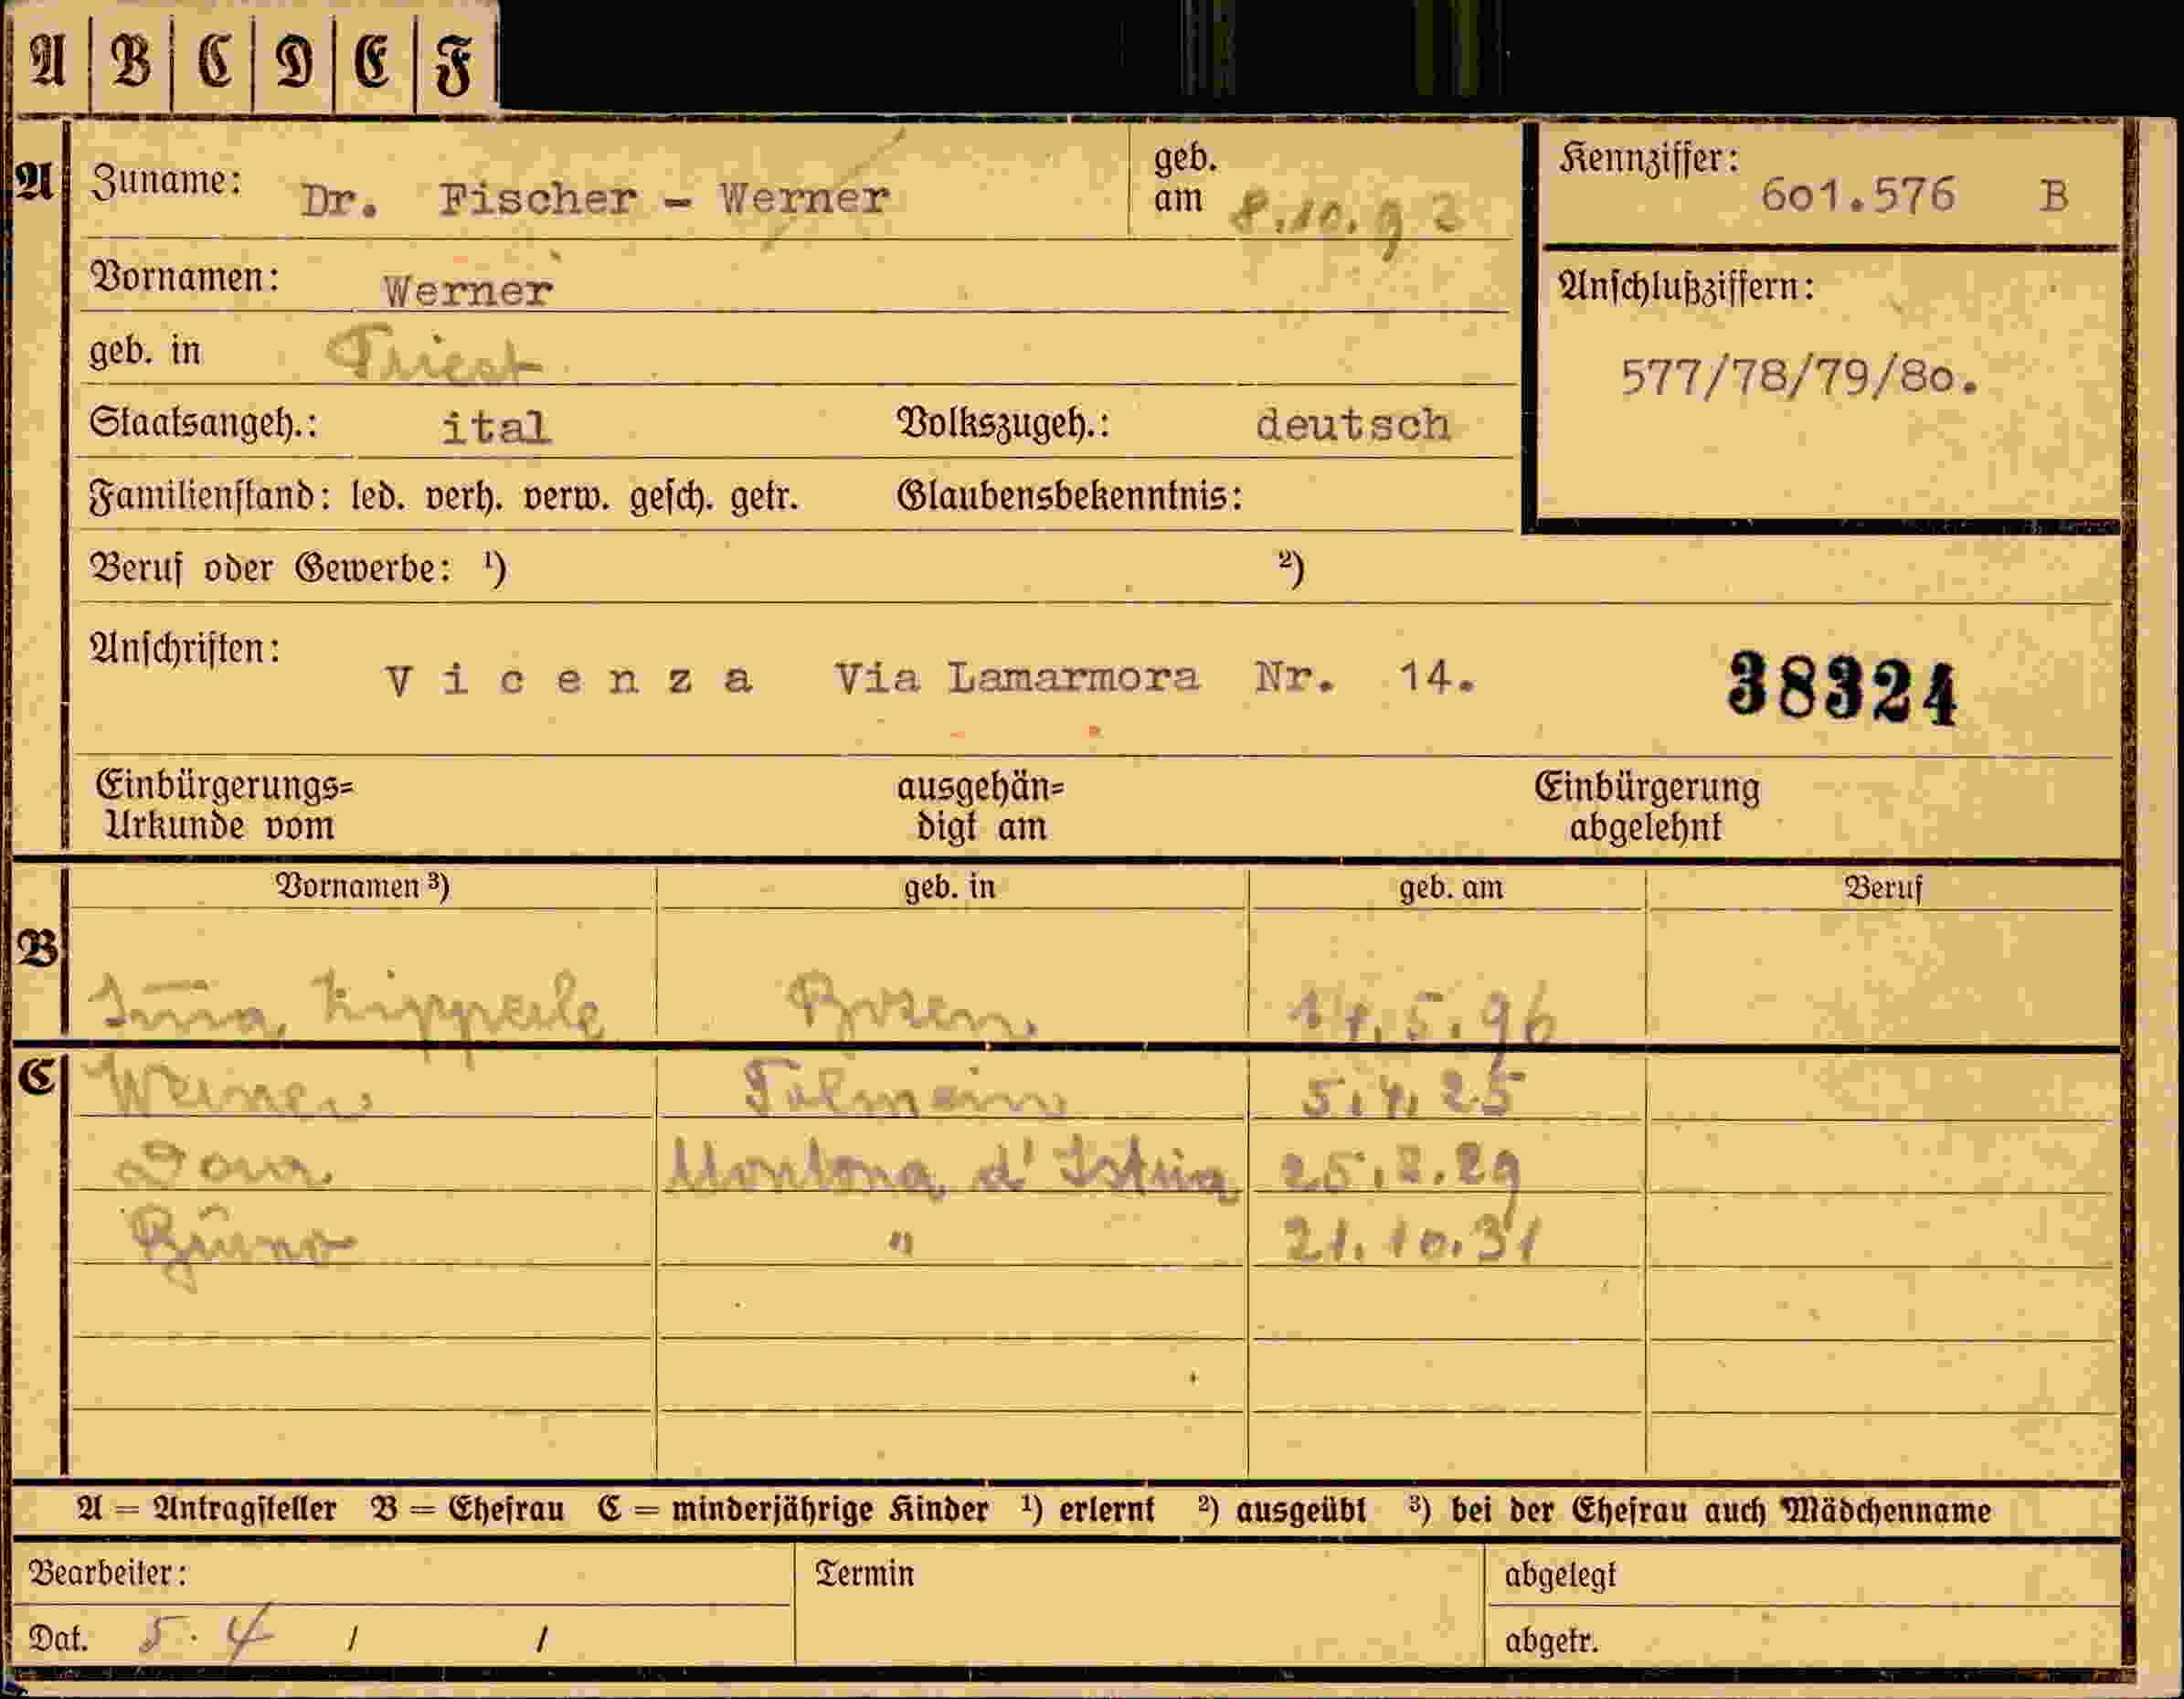 A B C D E F
A Zuname: Dr. Fischer - Werner geb. am 8.10.93 Kennziffer: 601.576 B
Vornamen: Werner Anschlußziffern:
geb. in Triest 577/78/79/80.
Staatsangeh.: ital Volkszugeh.: deutsch
Familienstand: led. verh. verw. gesch. getr. Glaubensbekenntnis:
Beruf oder Gewerbe: ¹) ²)
Anschriften: Vicenza Via Lamarmora Nr. 14. 38324
Einbürgerungs= Urkunde vom ausgehän= digt am Einbürgerung abgelehnt
Vornamen ³) geb. in geb. am Beruf
B Irma, Kipperle Bozen 14.5.96
C Werner Tolmein 5.4.25
Dora Montona d'Istria 25.2.29
Bruno " 21.10.31
A = Antragsteller B = Ehefrau C = minderjährige Kinder ¹) erlernt ²) ausgeübt ³) bei der Ehefrau auch Mädchenname
Bearbeiter: Termin abgelegt
Dat. 5.4 / / abgetr.